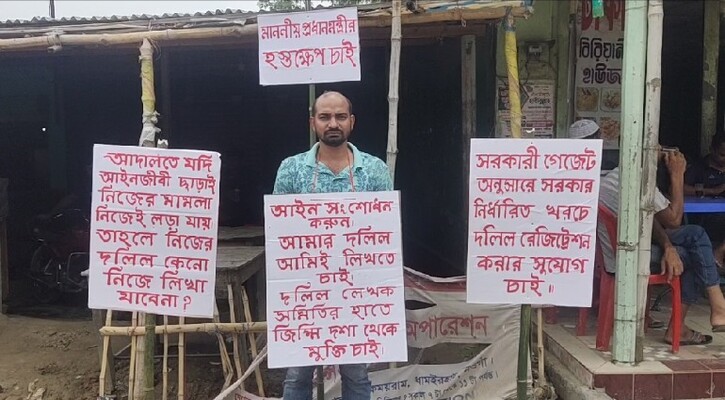 মাননীয় প্রধানমন্ত্রীর
হস্তক্ষেপ চাই
আদালতে যদি
আইনজীবী ছাড়াই
নিজের মামলা
নিজেই লড়া যায়
তাহলে নিজের
দলিল কেনো
নিজে লিখা
যাবেনা?
আইন সংশোধন
করুন।
আমার দলিল
আমিই লিখতে
চাই।
দলিল লেখক
সমিতির হাতে
জিম্মি দশা থেকে
মুক্তি চাই।
সরকারী গেজেট
অনুসারে সরকার
নির্ধারিত খরচে
দলিল রেজিট্রেশন
করার সুযোগ
চাই॥
বিরিয়ানী
হাউজ
অপারেশন